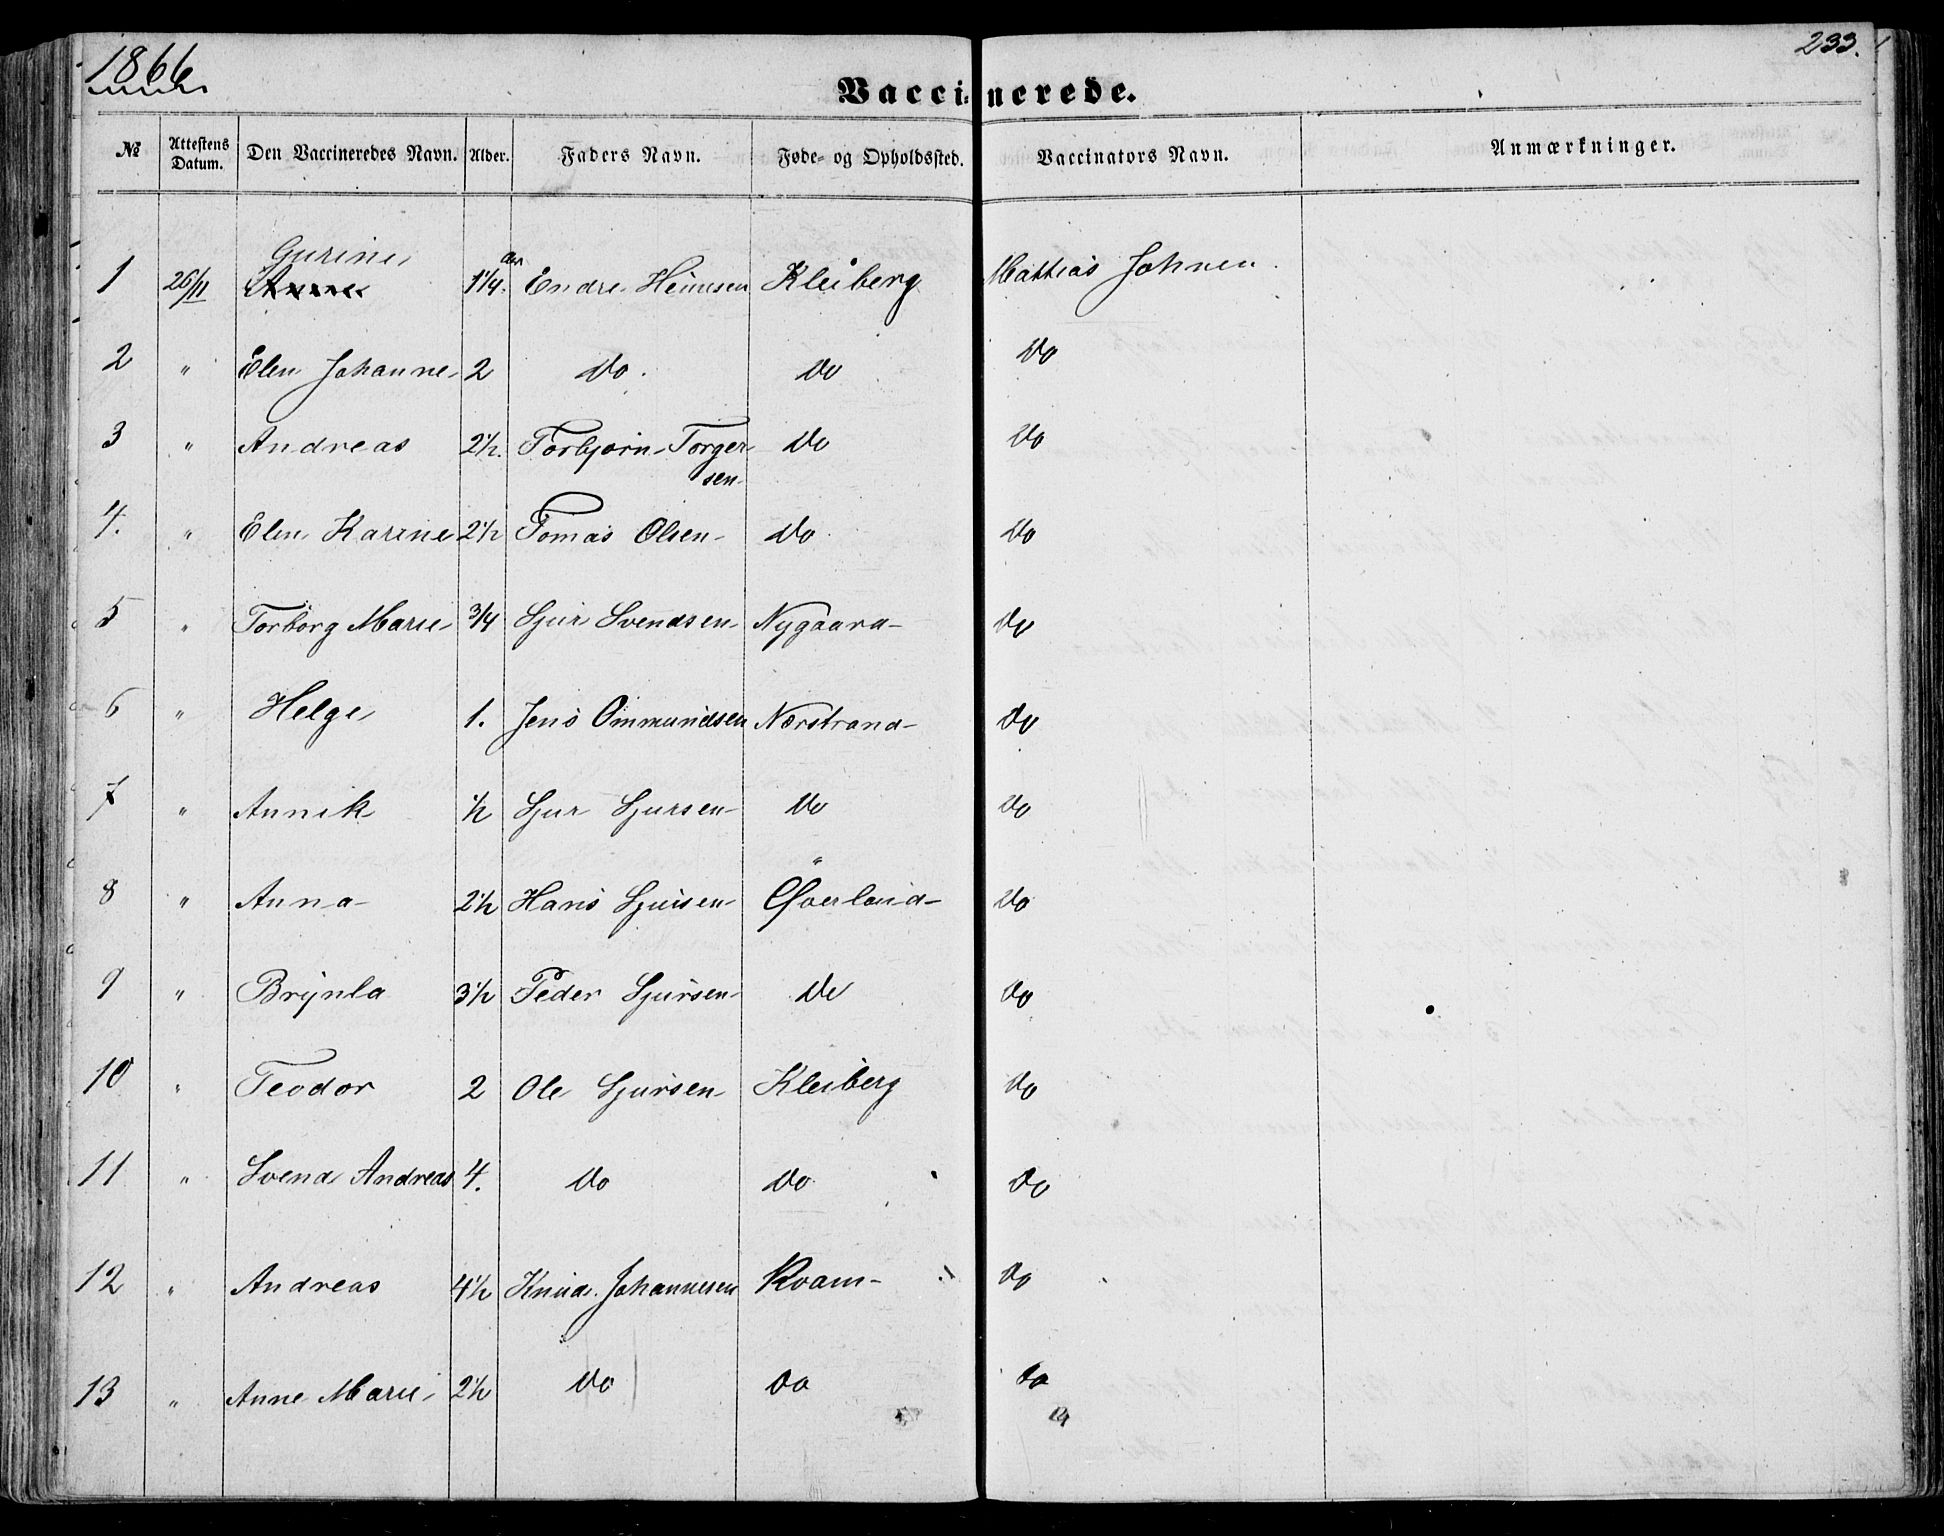 1866
233.
Vaccinerede.
№ Attestens Datum. Den Vaccineredes Navn. Alder. Faders Navn. Føde- og Opholdssted. Vaccinators Navn. Anmærkninger.
Gurine
1 26/11 Anne 1 1/4 Aar Endre Heinesen Kleiberg Mattias Johnsen
2 " Elen Johanne 2 do. do do
3 " Andreas 2 1/2 Torbjørn Torger- do do
sen
4. " Elen Karine 2 1/2 Tomas Olsen do do
5 " Torborg Marie 3/4 Sjur Svendsen Nygaard do
6 " Helge 1. Jens Ommundsen Nerstrand do
7 " Annik 1/2 Sjur Sjursen do do
8 " Anna 2 1/2 Hans Sjursen Øverland do
9 " Brynla 3 1/2 Peder Sjursen do do
10 " Teodor 2 Ole Sjursen Kleiberg do
11 " Svend Andreas 4. do do do
12 " Andreas 4 1/2 Knud Johannesen Kvam do
13 " Anne Marie 2 1/2 do do do